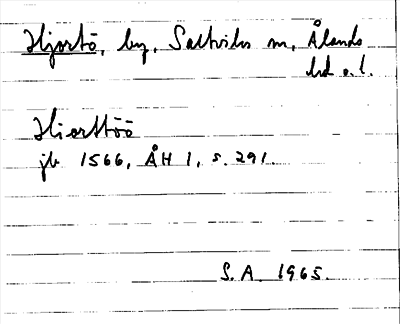 Hjortö, by, Saltviks sn, Ålands
hd o. l.
Hierttöö
jb 1566, ÅH 1, s. 291.
S. A. 1965.